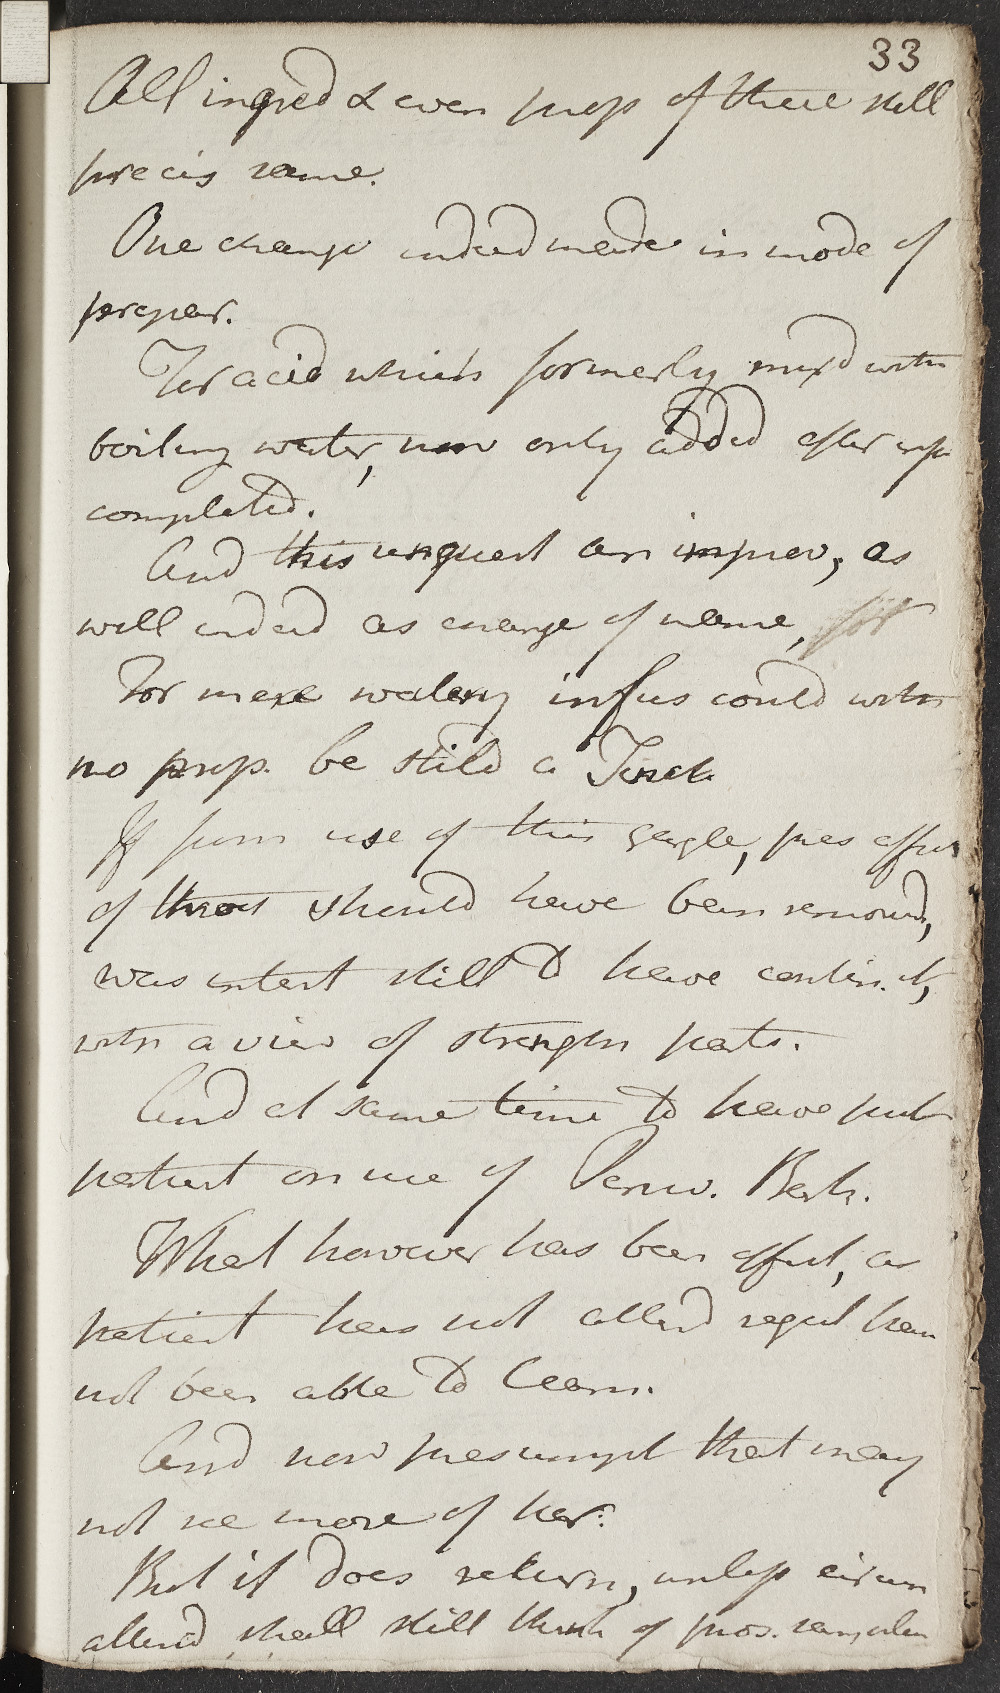 33
All ingred & even prop of these still
precis same.
One change indeed made in mode of
prepar.
For acid which formerly mixd with
boiling water, now only added after infu
completed.
And this unquest an improv, as
well indeed as change of name, for
For mere watery infus could with
no prop. be stild a Tinct
If from use of this gargle, pres affec
of throat should have been removd,
was intent still to have contin. it,
with a view of strength parts.
And at same time to have put
patient on use of Peruv. Bark.
What however has been effect, as
patient has not attend regul have
not been able to learn.
And now presumpt that may
not see more of her.
But if does return, unless circum
alterd, shall still think of pros. same plan